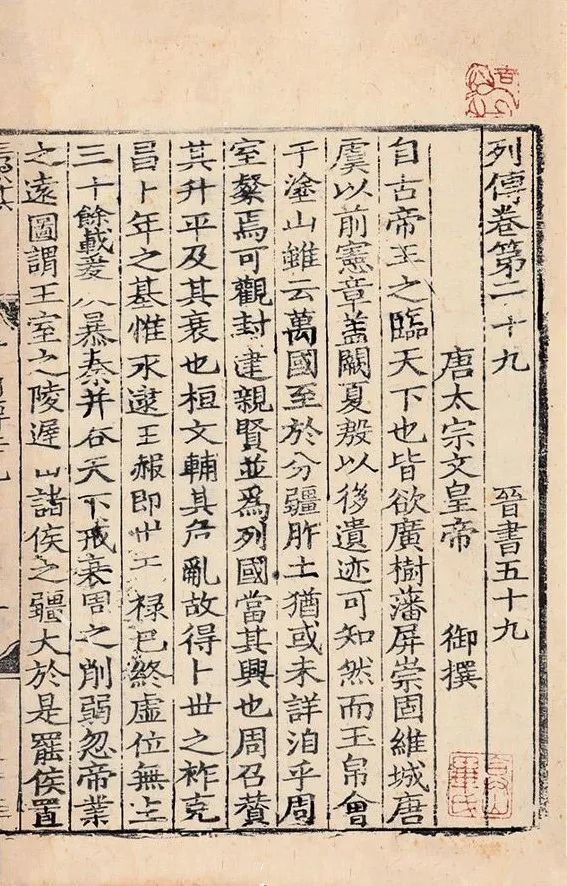 列傳卷第二十九 晉書五十九
唐太宗文皇帝 御撰
自古帝王之臨天下也皆欲廣樹藩屏崇固維城唐
虞以前憲章盖闕夏殷以後遺迹可知然而玉帛會
于塗山雖云萬國至於分疆胙土猶或未詳洎乎周
室粲焉可觀封建親賢並爲列國當其興也周召贊
其升平及其衰也桓文輔其危亂故得卜丗之祚克
昌卜年之基惟永逮王赧即丗天禄已終虛位無主
三十餘載爰及暴秦并吞天下戒衰周之削弱忽帝業
之遠圖謂王室之陵遲由諸侯之彊大於是罷侯置